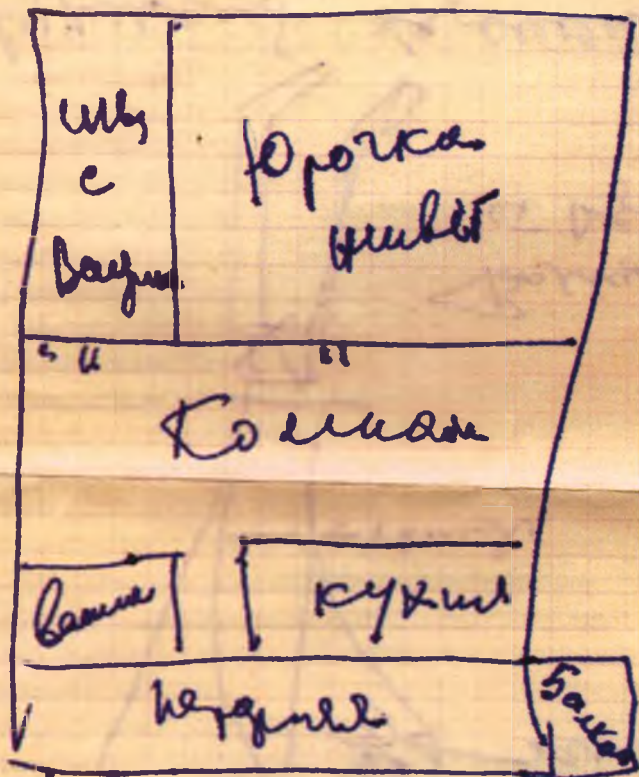 мы
с
Юрочка
живёт
Комнат
ванна
кухня
передняя
Балкон